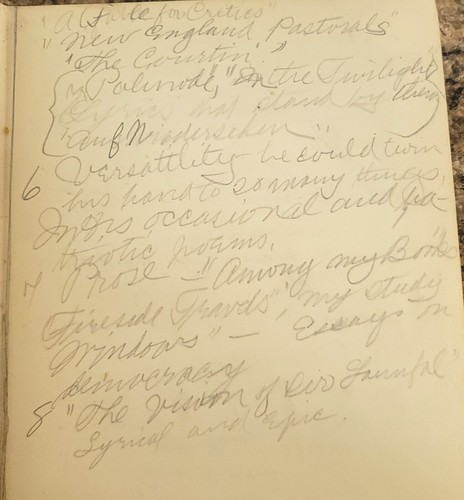 "A Fable for Critics"
"New England Pastorals"
"The Courtin'"
"Palinode", "In the Twilight"
Lyrics that stand by them
"Auf Wiedersehen"
6 Versatility - he could turn
his hand to so many things.
In his occasional and pa-
triotic poems.
7 Prose - "Among my Books"
Fireside Travels", "my Study
Windows" - Essays on
democracy
8 "The Vision of Sir Launfal"
Lyrical and Epic.